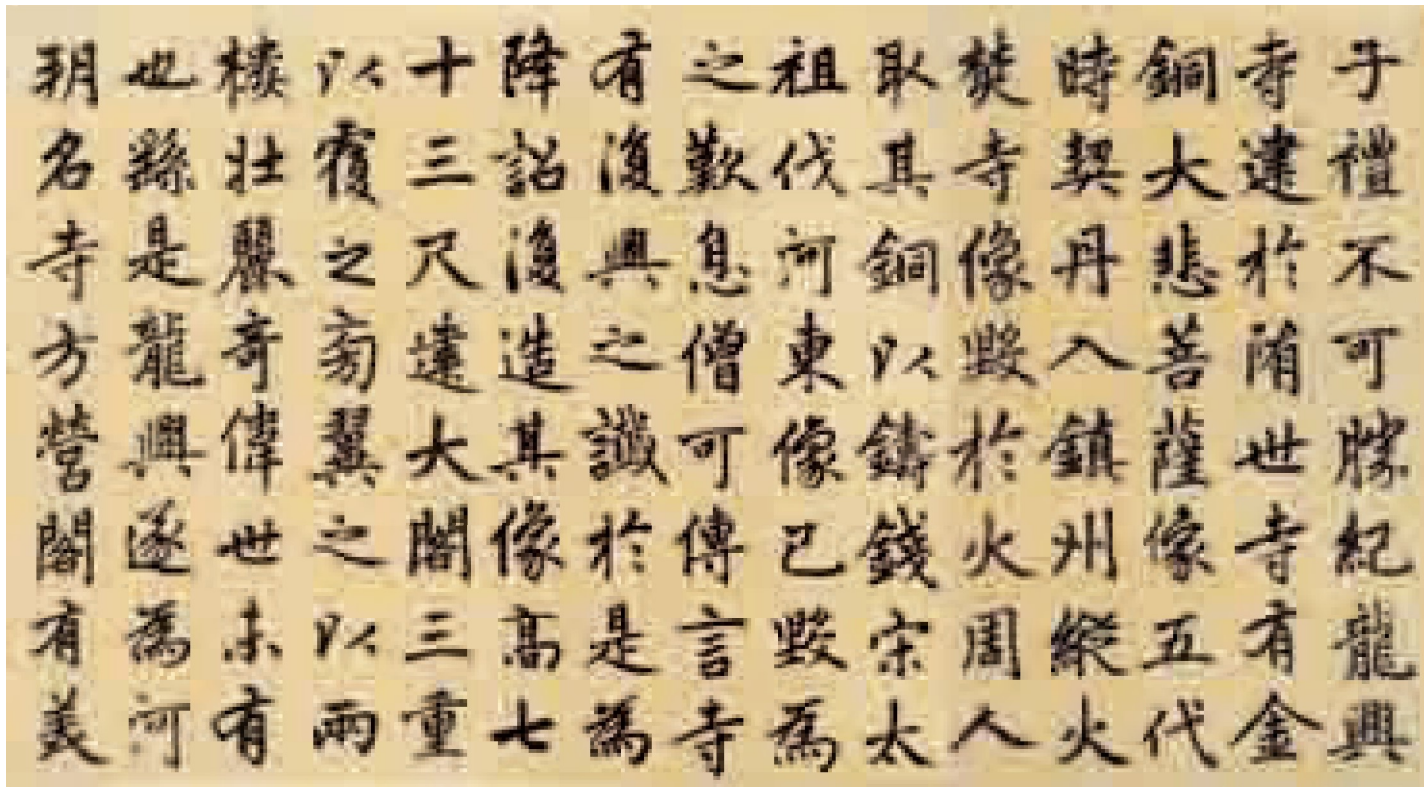 子禮不可勝紀龍興
寺建於隋世寺有金
銅大悲菩薩像五代
時契丹入鎮州縱火
焚寺像毀於火周人
取其銅以鑄錢宋太
祖伐河東像已毀為
之歎息僧可傳言寺
有復興之讖於是為
降詔復造其像高七
十三尺建大閣三重
以覆之旁翼之以兩
樓壯麗奇偉世未有
也繇是龍興遂為河
朔名寺方營閣有美